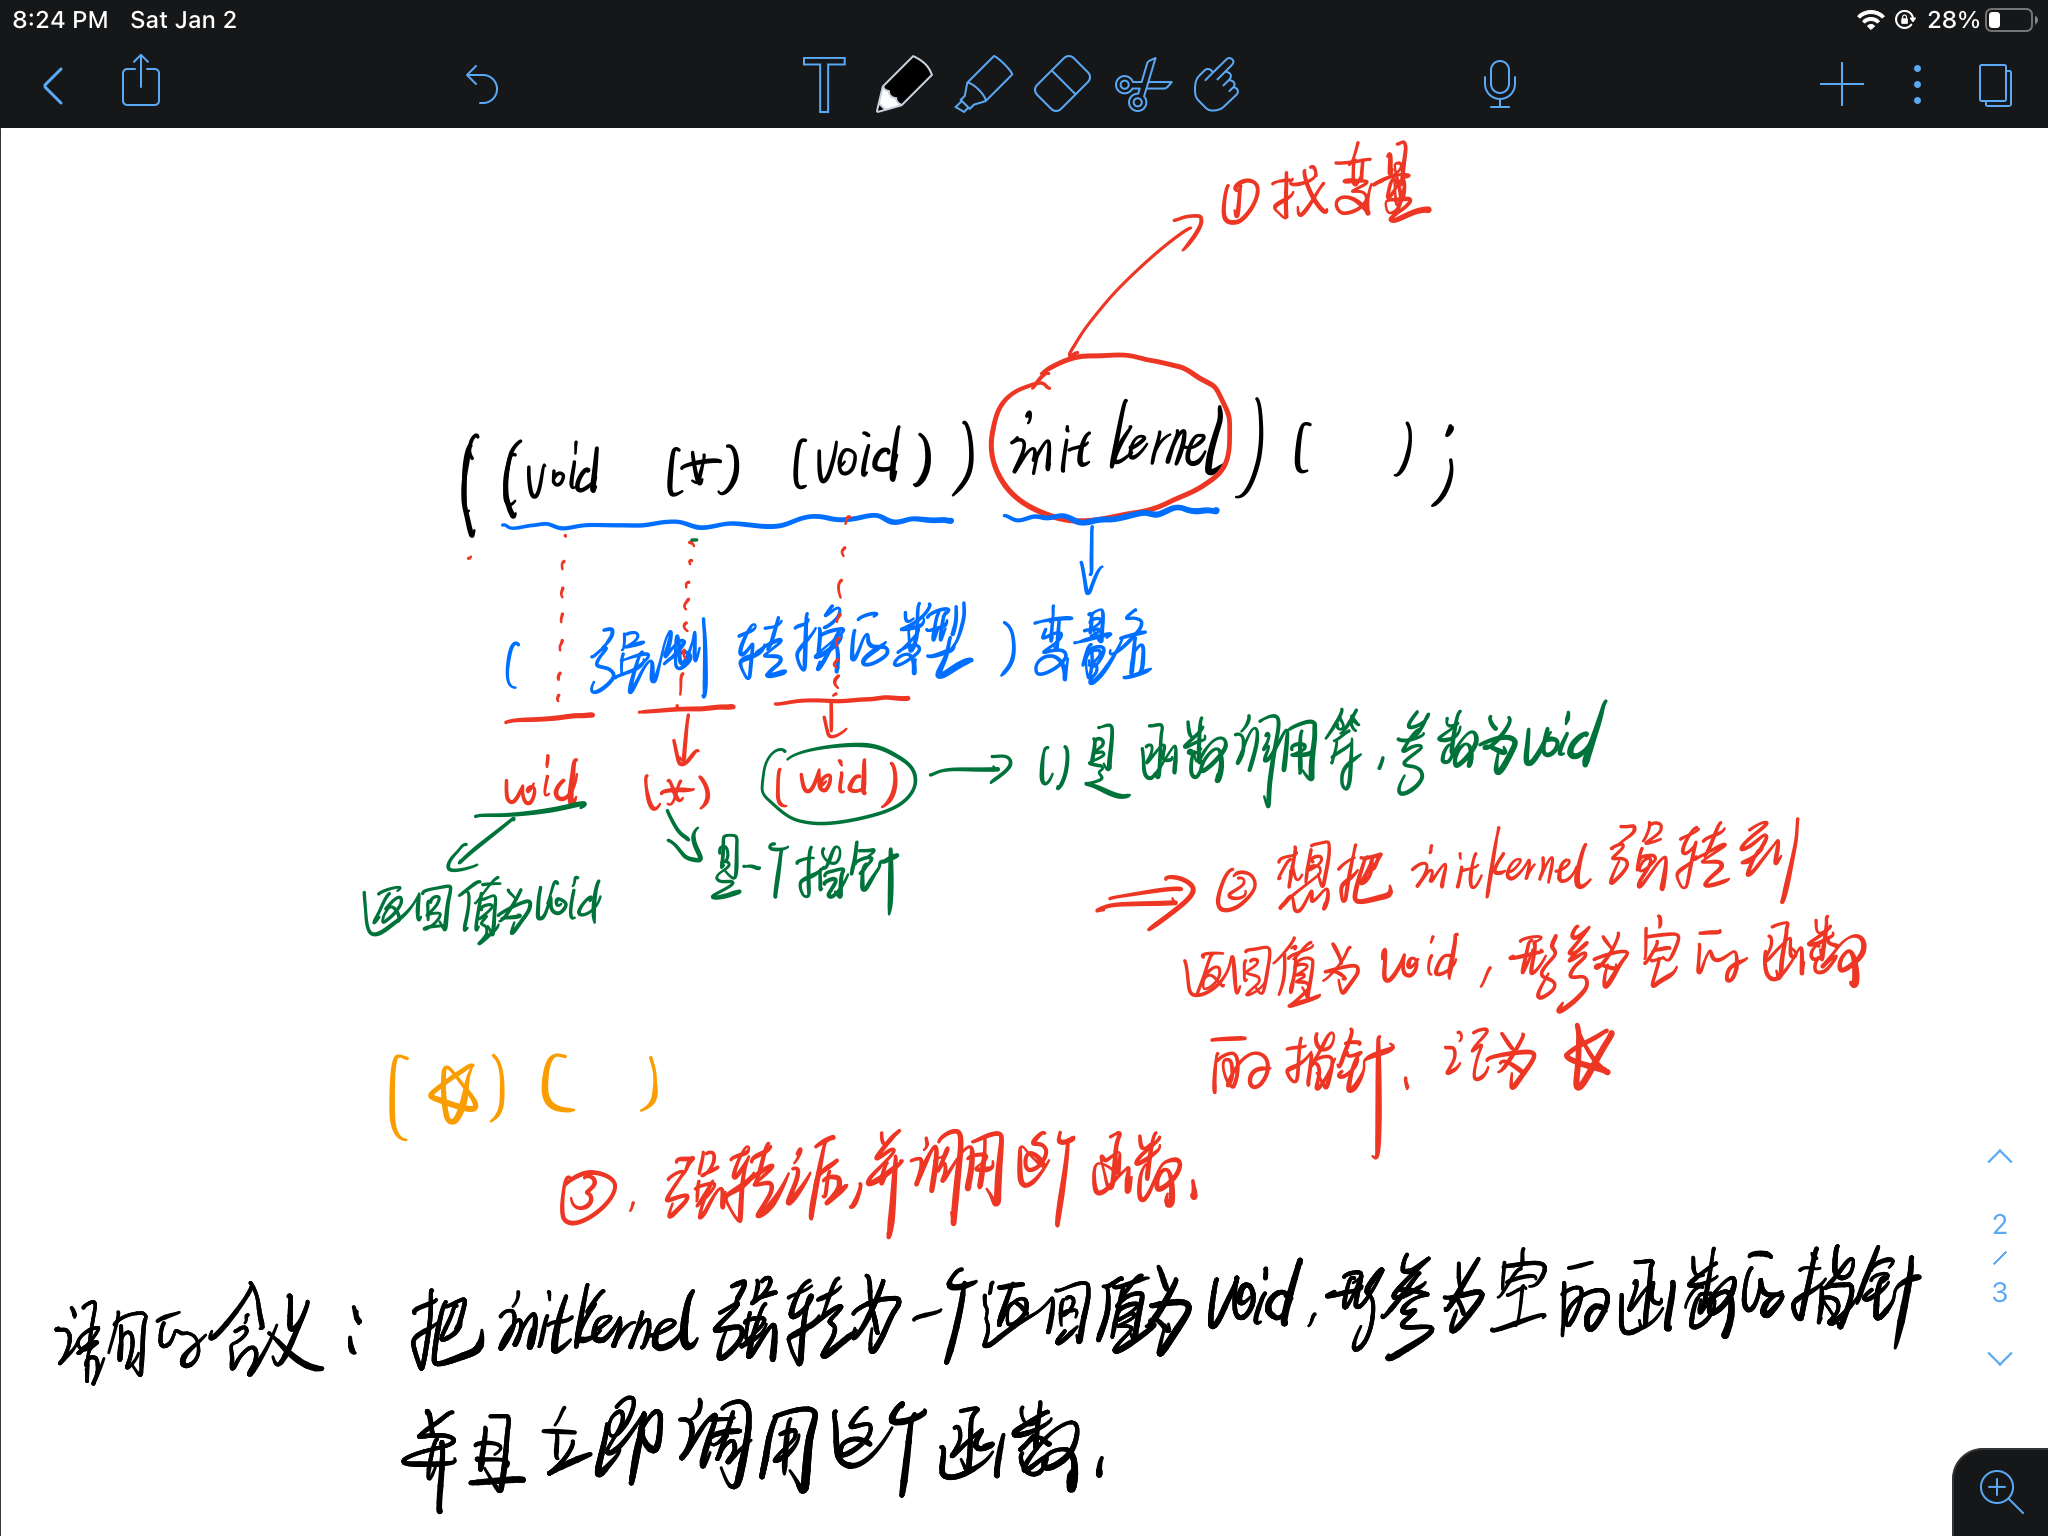 8:24 PM Sat Jan 2
28%
T
①找变量
((void (*) (void)) initkernel) ( );
( 强制转换的类型 ) 变量名
void (*) (void) → ()是函数调用符,参数为void
返回值为void
是一个指针
⇒ ②想把 initkernel 强转到
返回值为void,形参为空的函数
的指针、记为☆
(☆) ( )
③、强转活,并调用这个函数、
语句的含义:把initkernel强转为一个返回值为void,形参为空的函数的指针
并且立即调用这个函数、
2
/
3